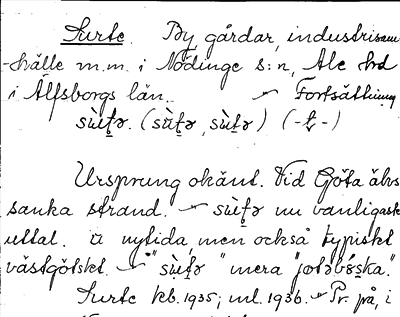 Surte. By, gårdar, industrisam-
-hälle m.m. i Nödinge s:n, Ale hd
i Älfsborgs län. ~ Fortsättning
sùt̠ə. (sùt̠ə, sùt̠ə) (-t̠-)
Ursprung okänt. Vid Göta älvs
sanka strand. ~ sùt̠ə nu vanligaste
uttal. u nytida, men också typiskt
västgötskt. ~ "sùt̠ə" mera
Surte kb. 1935; ml. 1936. ~ Pr. på, i